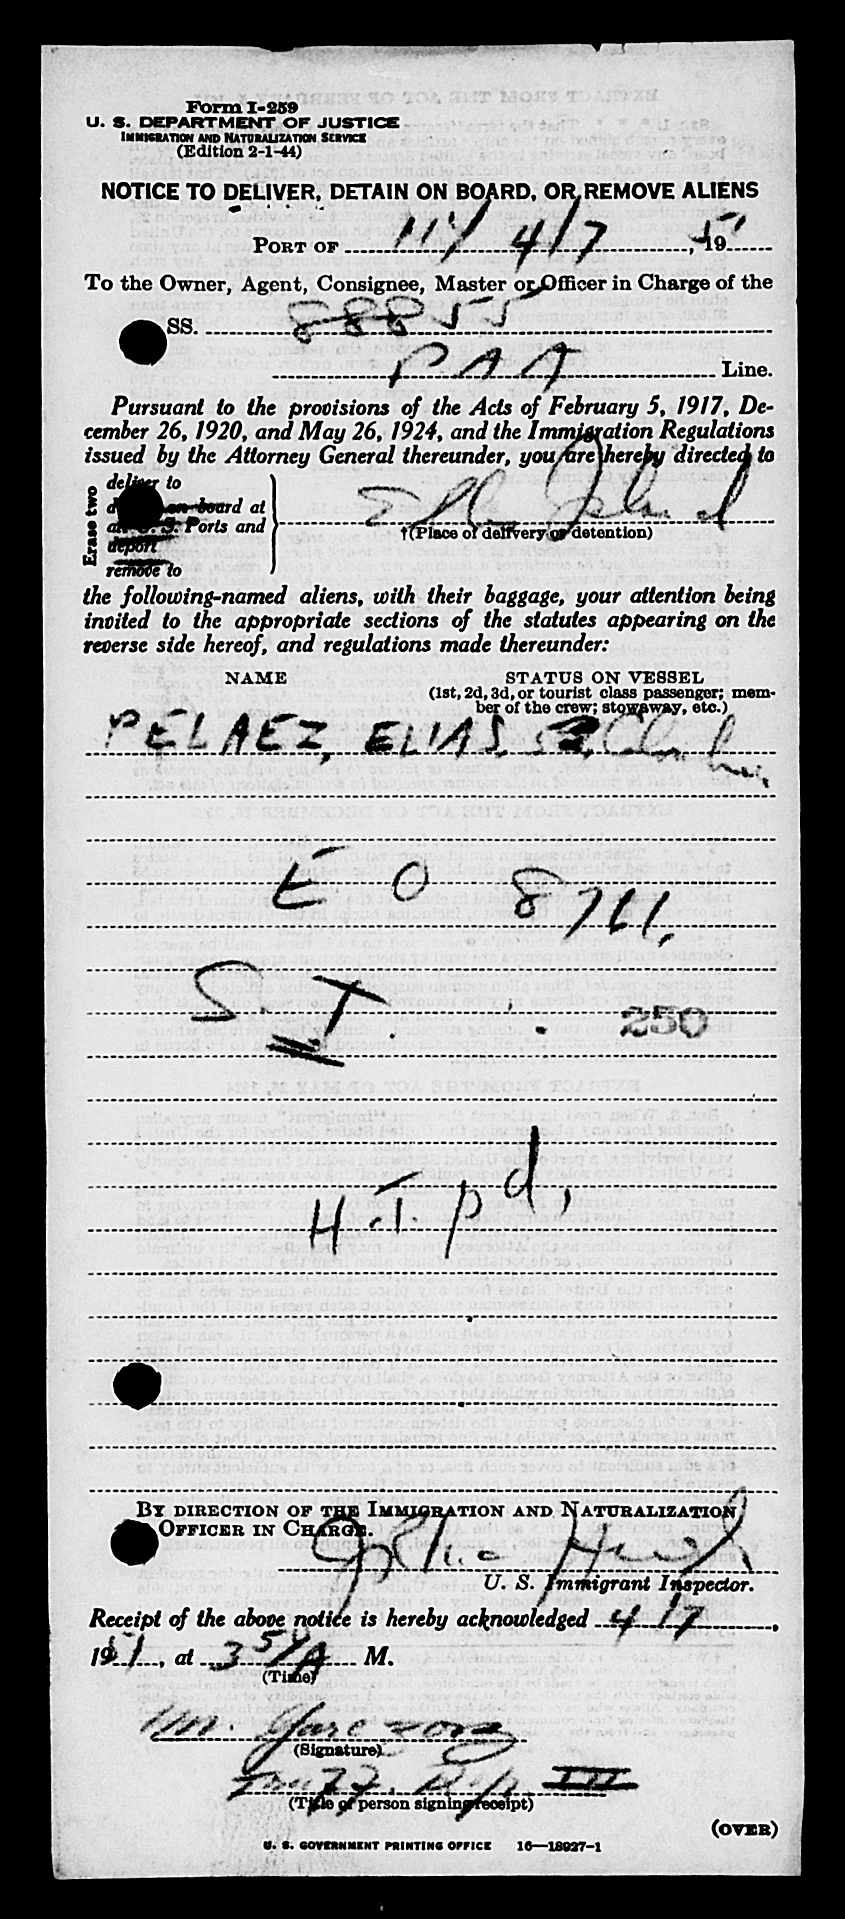 Form I-259
U. S. DEPARTMENT OF JUSTICE
IMMIGRATION AND NATURALIZATION SERVICE
(Edition 2-1-44)
NOTICE TO DELIVER, DETAIN ON BOARD, OR REMOVE ALIENS
PORT OF NY 4/7, 1951
To the Owner, Agent, Consignee, Master or Officer in Charge of the
SS. 88855
PAA Line.
Pursuant to the provisions of the Acts of February 5, 1917, De-
cember 26, 1920, and May 26, 1924, and the Immigration Regulations
issued by the Attorney General thereunder, you are hereby directed to
Erase two
deliver to
on board at
Ports and
deport
remove to
Ellis Island
†(Place of delivery or detention)
the following-named aliens, with their baggage, your attention being
invited to the appropriate sections of the statutes appearing on the
reverse side hereof, and regulations made thereunder:
NAME STATUS ON VESSEL
(1st, 2d, 3d, or tourist class passenger; mem-
ber of the crew; stowaway, etc.)
PELAEZ, ELIAS
E O 8766
S. I. 250
H. T. pd,
BY DIRECTION OF THE IMMIGRATION AND NATURALIZATION
OFFICER IN CHARGE.
U. S. Immigrant Inspector.
Receipt of the above notice is hereby acknowledged 4/7,
1951, at 3 54 A M.
(Time)
(Signature)
(Title of person signing receipt)
(OVER)
U. S. GOVERNMENT PRINTING OFFICE 16—18927-1